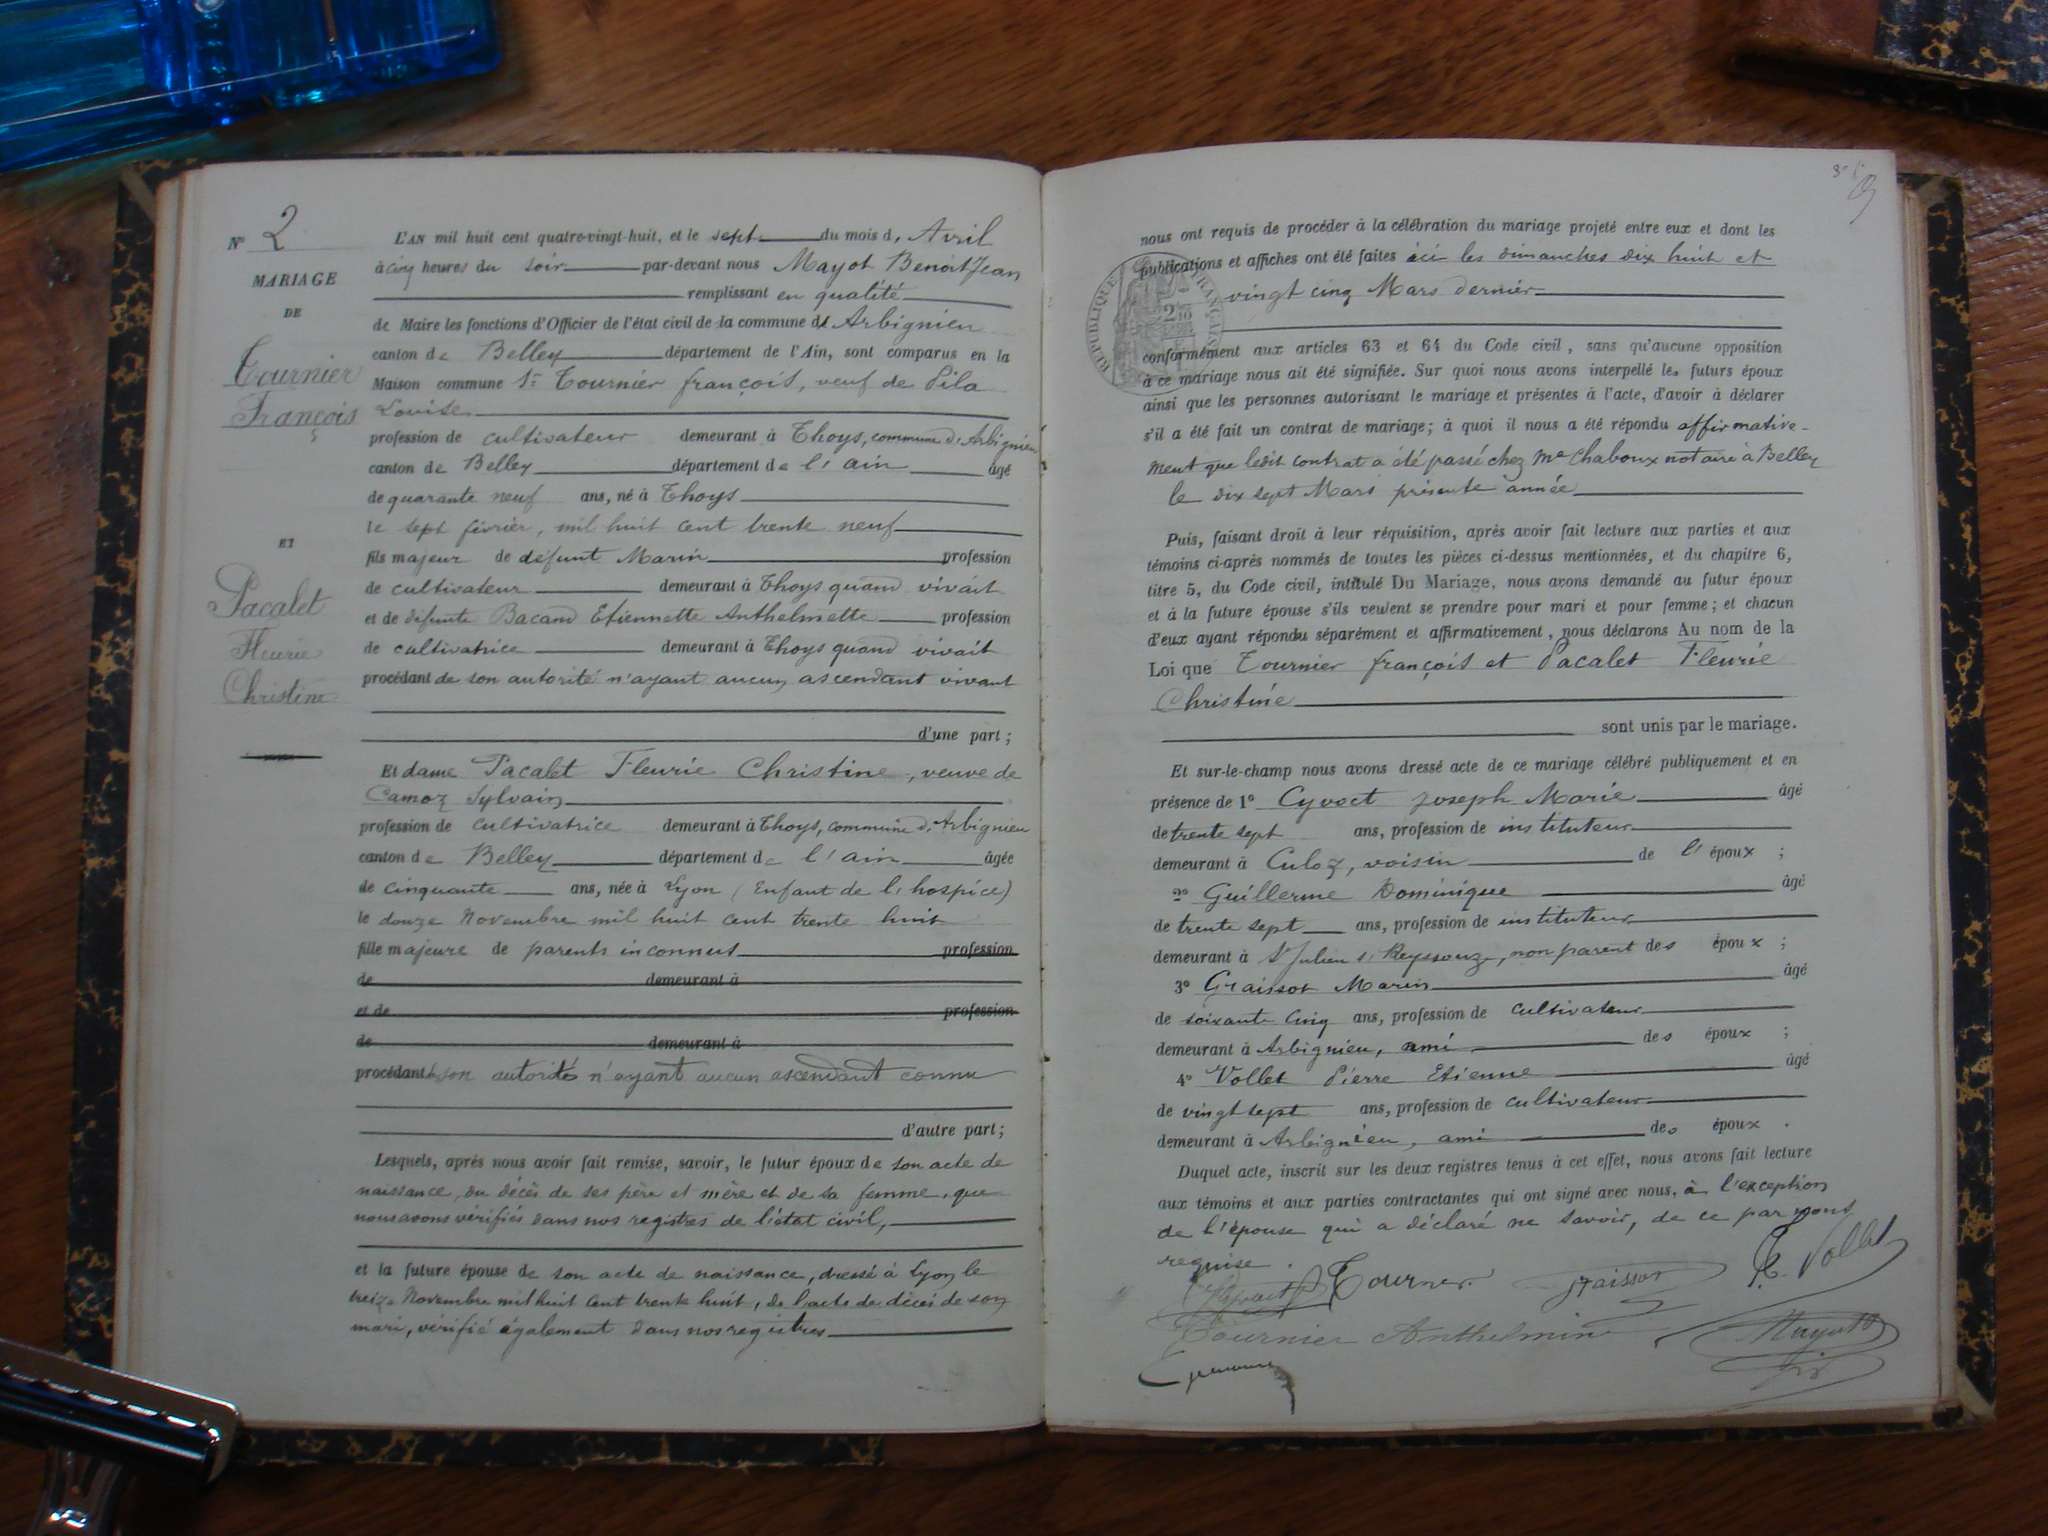 Nº 2
MARIAGE
DE
Tournier
François
ET
Pacalet
Fleurie
Christine
L'AN mil huit cent quatre-vingt-huit, et le sept du mois d' Avril
à cinq heures du soir par-devant nous Mayot Benoit Jean
remplissant en qualité
de Maire les fonctions d'Officier de l'état civil de la commune d' Arbignieu
canton de Belley département de l'Ain, sont comparus en la
Maison commune Sr Tournier françois, veuf de Pila
Louise
profession de cultivateur demeurant à Thoys, commune d'Arbignieu
canton de Belley département de l'ain âgé
de quarante neuf ans, né à Thoys
le sept février, mil huit cent trente neuf
fils majeur de défunt Marin profession
de cultivateur demeurant à Thoys quand vivait
et de défunte Bacand Etiennette Anthelmette profession
de cultivatrice demeurant à Thoys quand vivait
procédant de son autorité n'ayant aucun ascendant vivant
d'une part;
Et dame Pacalet Fleurie Christine, veuve de
Camoz Sylvain
profession de cultivatrice demeurant à Thoys, commune d'Arbignieu
canton de Belley département de l'ain âgée
de cinquante ans, née à Lyon (Enfant de l'hospice)
le douze Novembre mil huit cent trente huit
fille majeure de parents inconnus profession
de demeurant à
et de profession
de demeurant à
procédant son autorité n'ayant aucun ascendant connu
d'autre part;
Lesquels, après nous avoir fait remise, savoir, le futur époux de son acte de
naissance, du décès de ses père et mère et de sa femme, que
nous avons vérifiés dans nos registres de l'état civil,
et la future épouse de son acte de naissance, dressé à Lyon le
treize Novembre mil huit cent trente huit, de l'acte de décès de son
mari, vérifié également dans nos registres
nous ont requis de procéder à la célébration du mariage projeté entre eux et dont les
publications et affiches ont été faites ici les dimanches dix huit et
vingt cinq Mars dernier
RÉPUBLIQUE FRANÇAISE
conformément aux articles 63 et 64 du Code civil, sans qu'aucune opposition
à ce mariage nous ait été signifiée. Sur quoi nous avons interpellé les futurs époux
ainsi que les personnes autorisant le mariage et présentes à l'acte, d'avoir à déclarer
s'il a été fait un contrat de mariage; à quoi il nous a été répondu affirmative-
ment que ledit contrat a été passé chez Me Chaboux notaire à Belley
le dix sept Mars présente année
Puis, faisant droit à leur réquisition, après avoir fait lecture aux parties et aux
témoins ci-après nommés de toutes les pièces ci-dessus mentionnées, et du chapitre 6,
titre 5, du Code civil, intitulé Du Mariage, nous avons demandé au futur époux
et à la future épouse s'ils veulent se prendre pour mari et pour femme; et chacun
d'eux ayant répondu séparément et affirmativement, nous déclarons Au nom de la
Loi que Tournier françois et Pacalet Fleurie
Christine
sont unis par le mariage.
Et sur-le-champ nous avons dressé acte de ce mariage célébré publiquement et en
présence de 1º Cyvoct Joseph Marie âgé
de trente sept ans, profession de instituteur
demeurant à Culoz, voisin de l'époux;
2º Guillerme Dominique âgé
de trente sept ans, profession de instituteur
demeurant à St Julien s/ Reyssouze, non parent des époux;
3º Graissot Marin âgé
de soixante cinq ans, profession de cultivateur
demeurant à Arbignieu, ami des époux;
4º Vollet Pierre Etienne âgé
de vingt sept ans, profession de cultivateur
demeurant à Arbignieu, ami des époux.
Duquel acte, inscrit sur les deux registres tenus à cet effet, nous avons fait lecture
aux témoins et aux parties contractantes qui ont signé avec nous, à l'exception
de l'épouse qui a déclaré ne savoir, de ce par nous
requise.
Tournier E. Vollet
Tournier Anthelmine